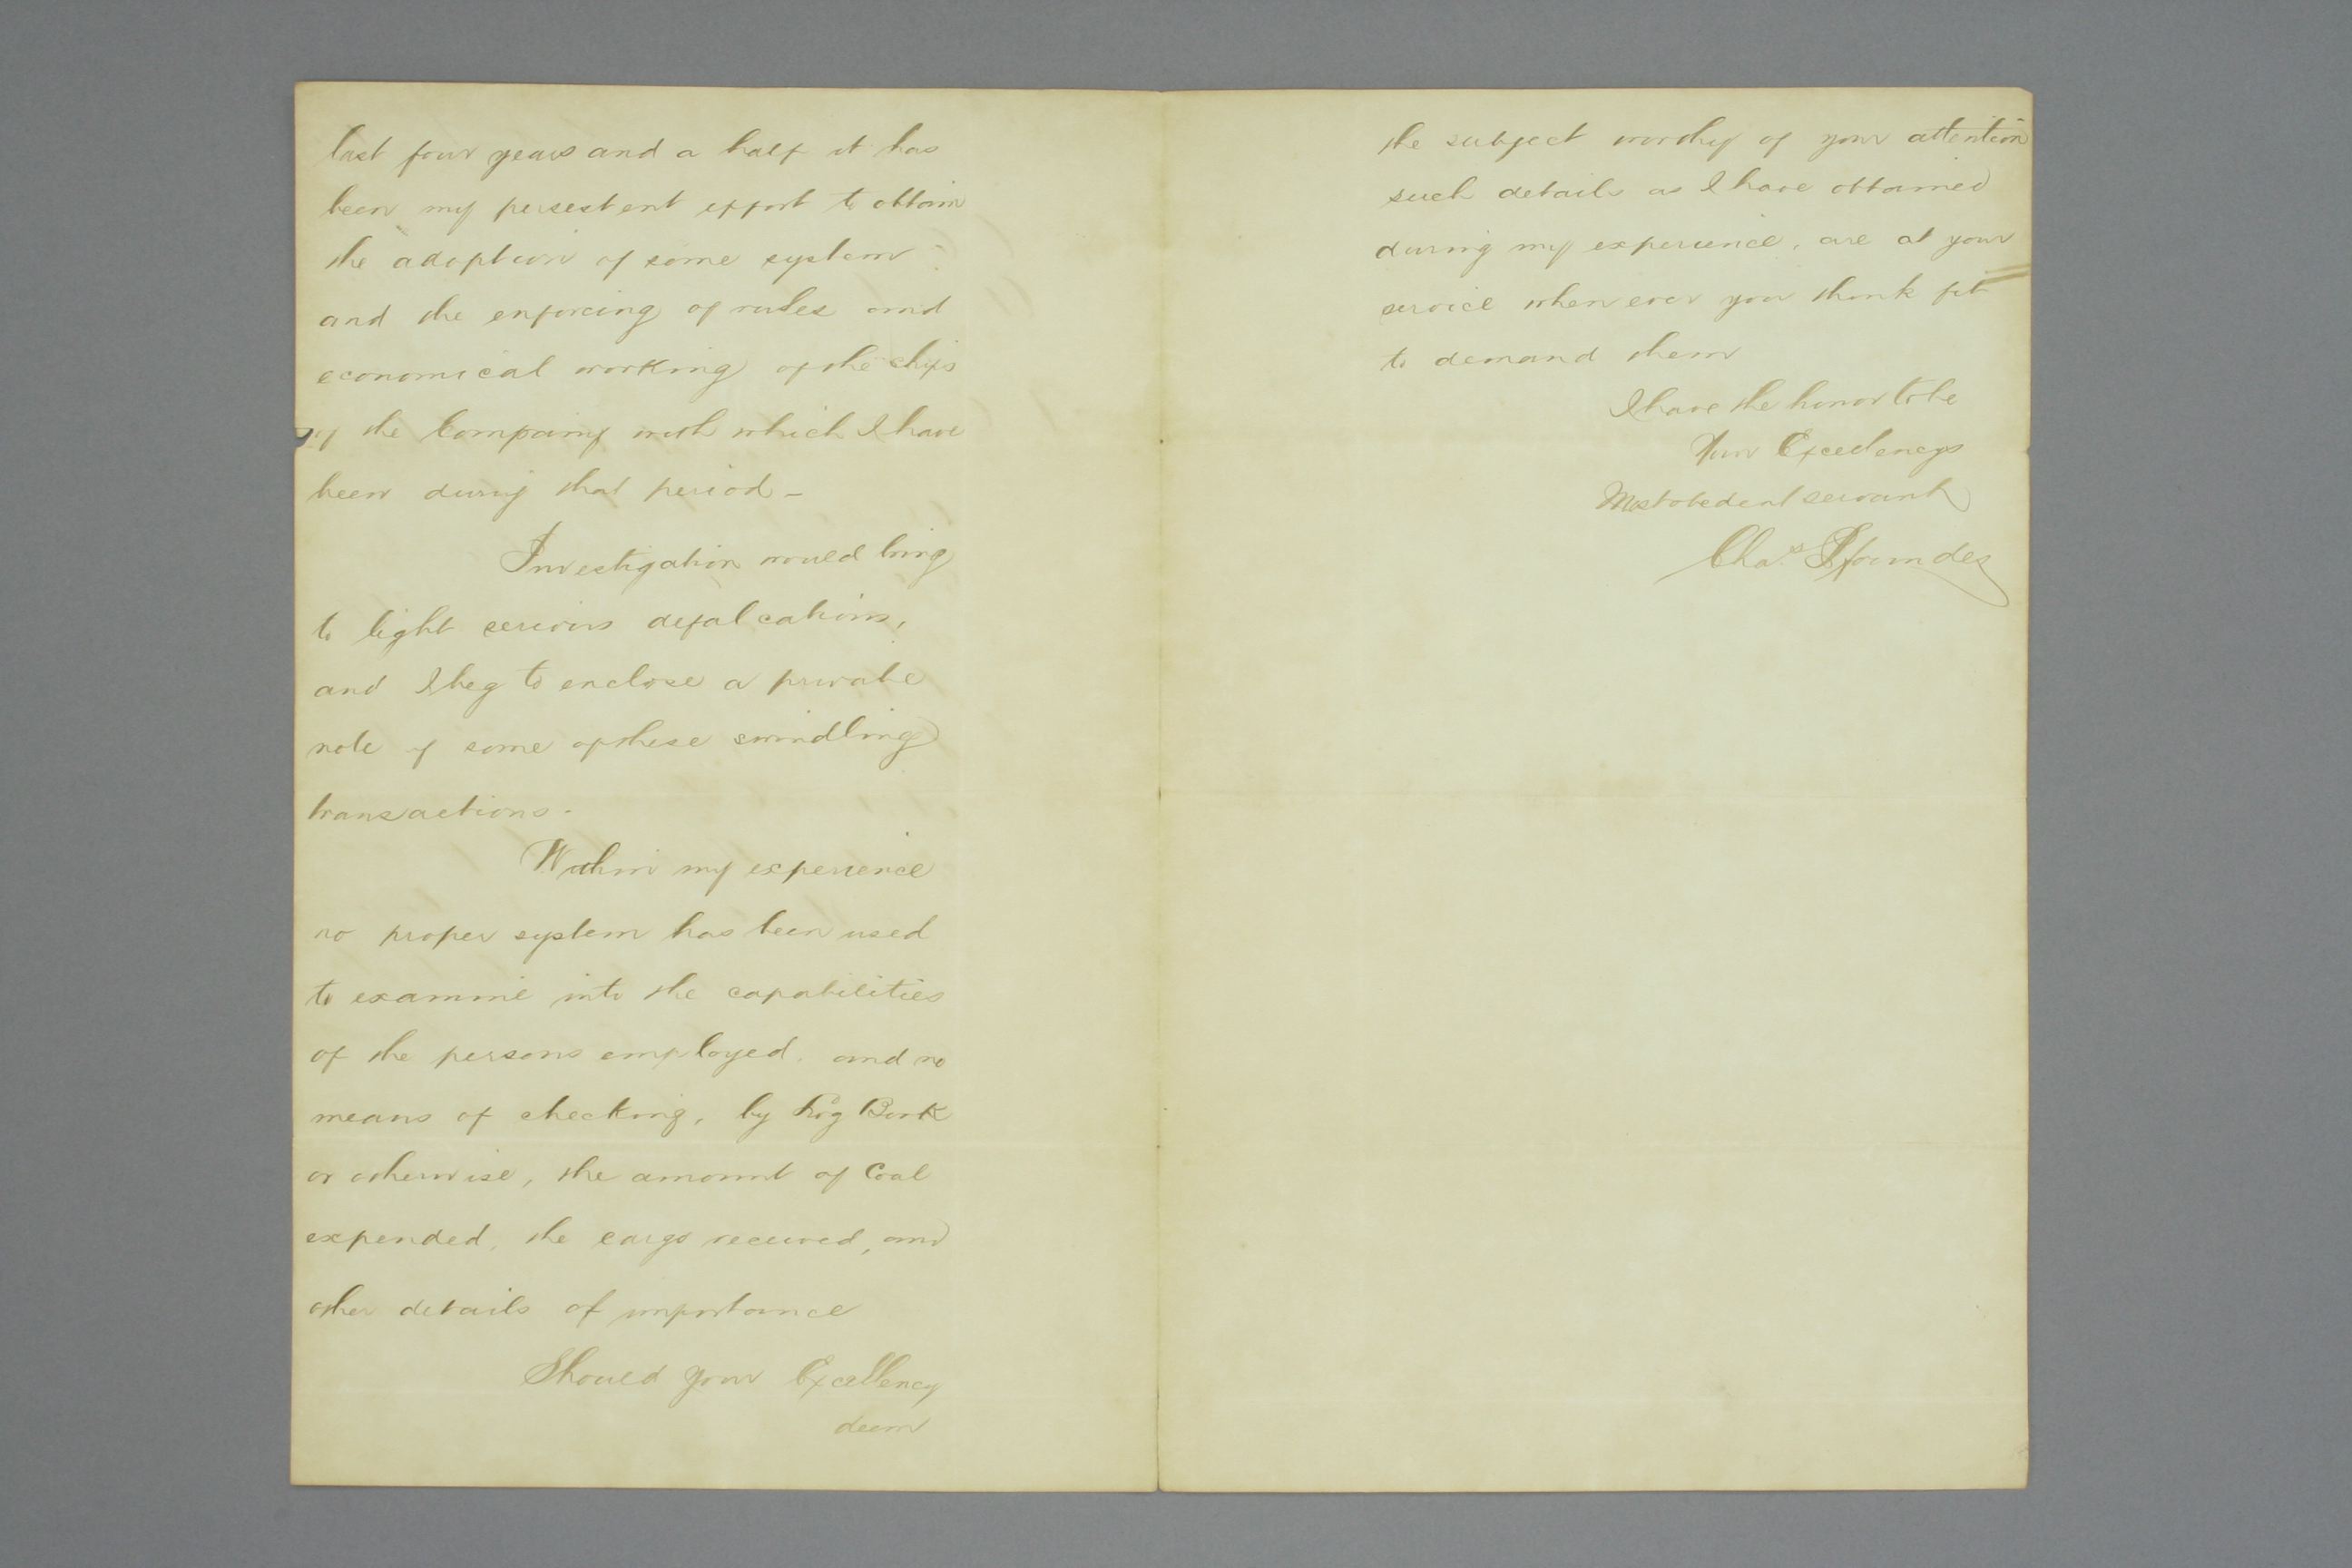 last four years and a half it has
been my persestent effort to obtain
the adoption of some system
and the enforcing of rules and
economical working of the ships
of the Company with which I have
been during that period -
Investigation would bring
to light serious defalcations,
and I beg to enclose a private
note of some of these swindling
transactions -
Within my experience
no proper system has been used
to examine into the capabilities
of the persons employed. and no
means of checking, by Log Book
or otherwise, the amount of Coal
expended, the cargo received, and
other details of importance
Should your Excellency
deem
the subject worthy of your attention
such details as I have obtained
during my experience, are at your
service whenever you think fit
to demand them
I have the honor to be
Your Excellencys
Most obedient servant
Chas. Pfoundes